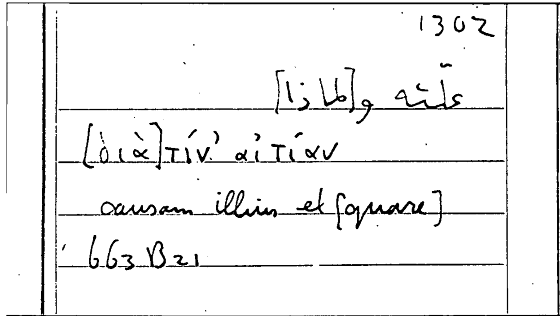 1302
علّته و[لماذا]
[διὰ] τίν' αἰτίαν
causam illius et [quare]
663 B21